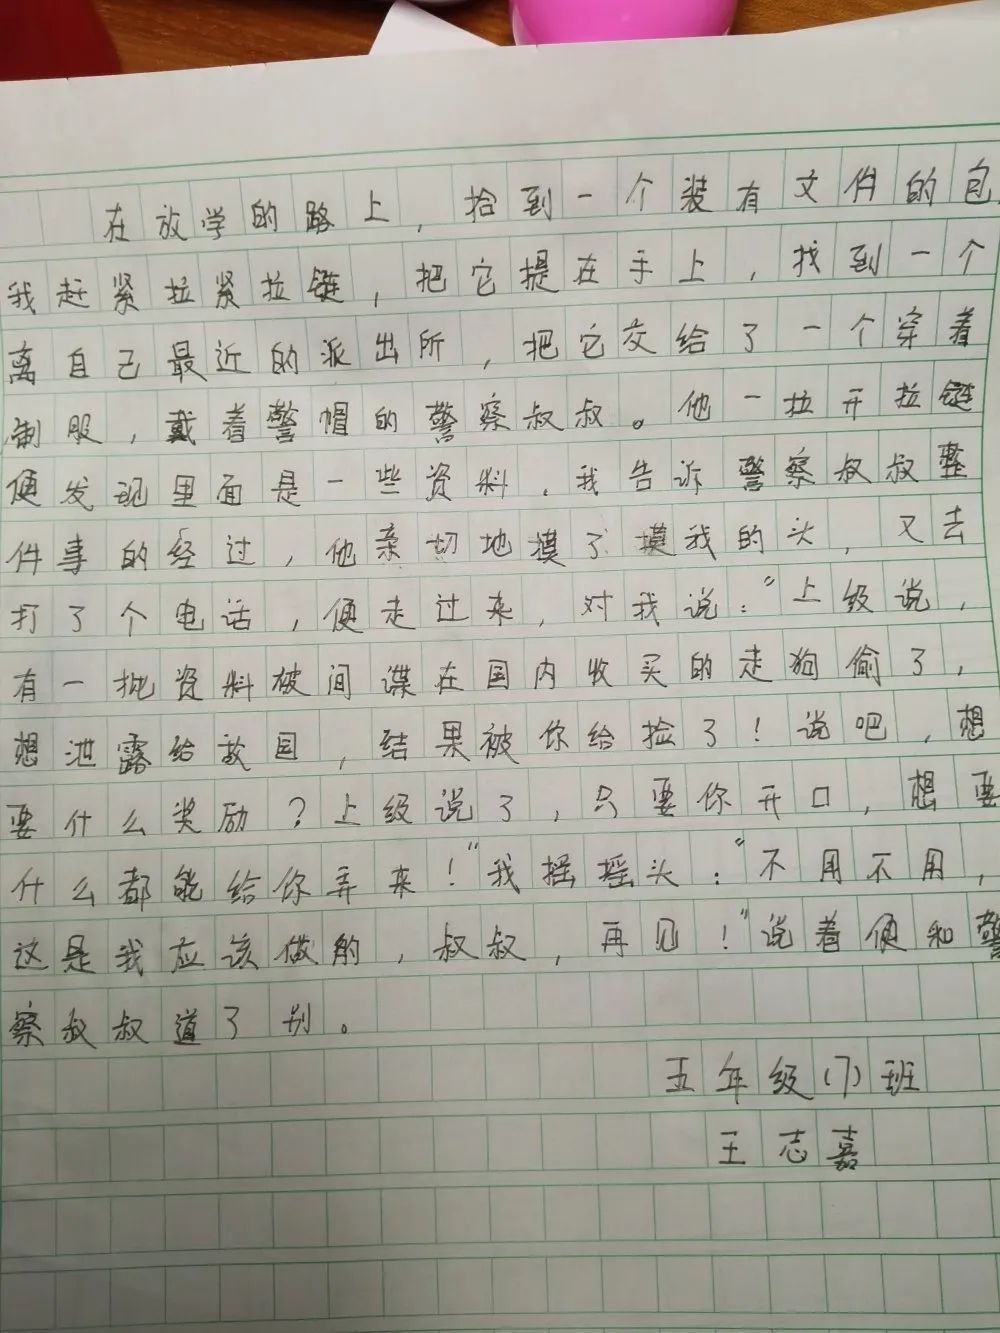 在放学的路上，拾到一个装有文件的包，
我赶紧拉紧拉链，把它提在手上，找到一个
离自己最近的派出所，把它交给了一个穿着
制服，戴着警帽的警察叔叔。他一拉开拉链
便发现里面是一些资料，我告诉警察叔叔整
件事的经过，他亲切地摸了摸我的头，又去
打了个电话，便走过来，对我说：“上级说，
有一批资料被间谍在国内收买的走狗偷了，
想泄露给敌国，结果被你给捡了！说吧，想
要什么奖励？上级说了，只要你开口，想要
什么都能给你弄来！”我摇摇头：“不用不用，
这是我应该做的，叔叔，再见！”说着便和警
察叔叔道了别。
五年级(7)班
王志嘉